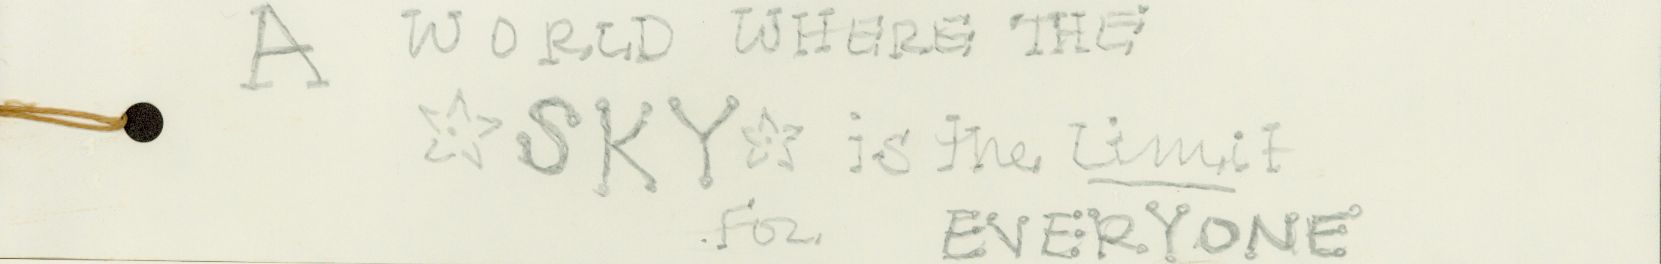 A WORLD WHERE THE
SKY is the Limit
For EVERYONE